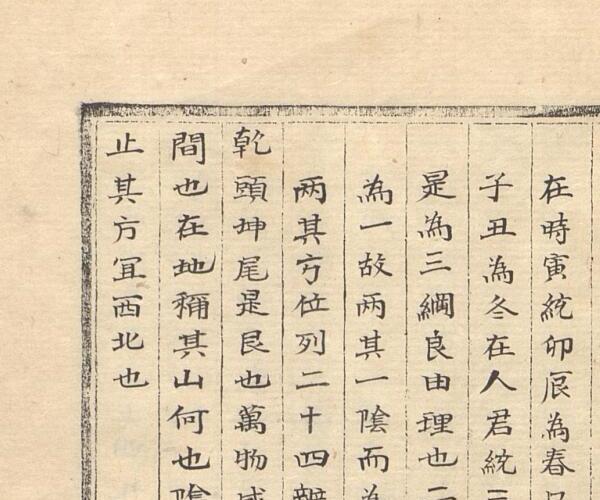 在時寅統卯辰為春
子丑為冬在人君統
是為三綱良由理也
為一故两其一陰而
两其方位列二十四
乾頭坤尾是艮也萬物
間也在地稱其山何也陰
止其方冝西北也